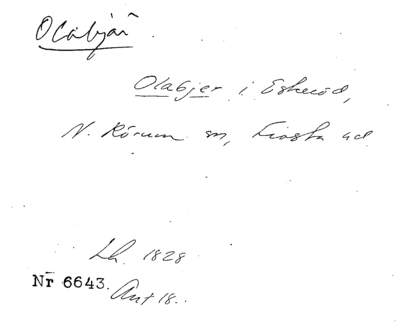 Olabjär
Olabjer i Eskeröd,
N. Rörum sn, Frosta hd
Lh. 1828
Nr 6643. Ant 18.